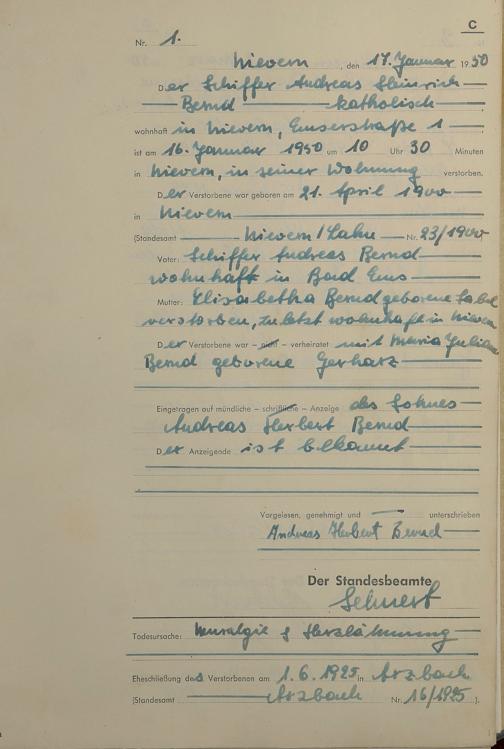 C
Nr. 1.
Nievern, den 17. Januar 1950
Der Schiffer Andreas Heinrich
Bernd katholisch
wohnhaft in Nievern, Emserstraße 1
ist am 16. Januar 1950 um 10 Uhr 30 Minuten
in Nievern, in seiner Wohnung verstorben.
Der Verstorbene war geboren am 21. April 1900
in Nievern
(Standesamt Nievern/Lahn Nr. 23/1900
Vater: Schiffer Andreas Bernd
wohnhaft in Bad Ems
Mutter: Elisabetha Bernd geborene
verstorben, zuletzt wohnhaft in Nievern
Der Verstorbene war – nicht – verheiratet mit Maria
Bernd geborene Gerharz
Eingetragen auf mündliche – schriftliche – Anzeige des Sohnes
Andreas Herbert Bernd
Der Anzeigende ist bekannt
Vorgelesen, genehmigt und unterschrieben
Andreas Herbert Bernd
Der Standesbeamte
Todesursache: & Herzlähmung
Eheschließung des Verstorbenen am 1.6.1925 in Arzbach
(Standesamt Arzbach Nr. 16/1925).